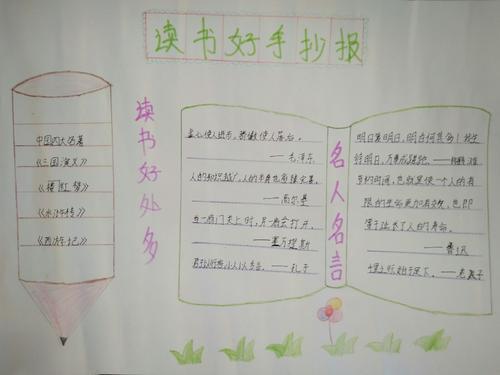 读书好手抄报
中国四大名著
《三国演义》
《红楼梦》
《水浒传》
《西游记》
读书好处多
虚心使人进步，骄傲使人落后。
——毛泽东
人的知识越广，人的本身也愈臻完善。
——高尔基
当一扇门关上时，另一扇会打开。
——塞万提斯
——孔子
名人名言
明日复明日，明日何其多！我生
待明日，万事成蹉跎。——
节约时间，也就是使一个人的有
限的生命更加有效，也即
等于延长了人的寿命。
——鲁迅
千里之行始于足下。——老子